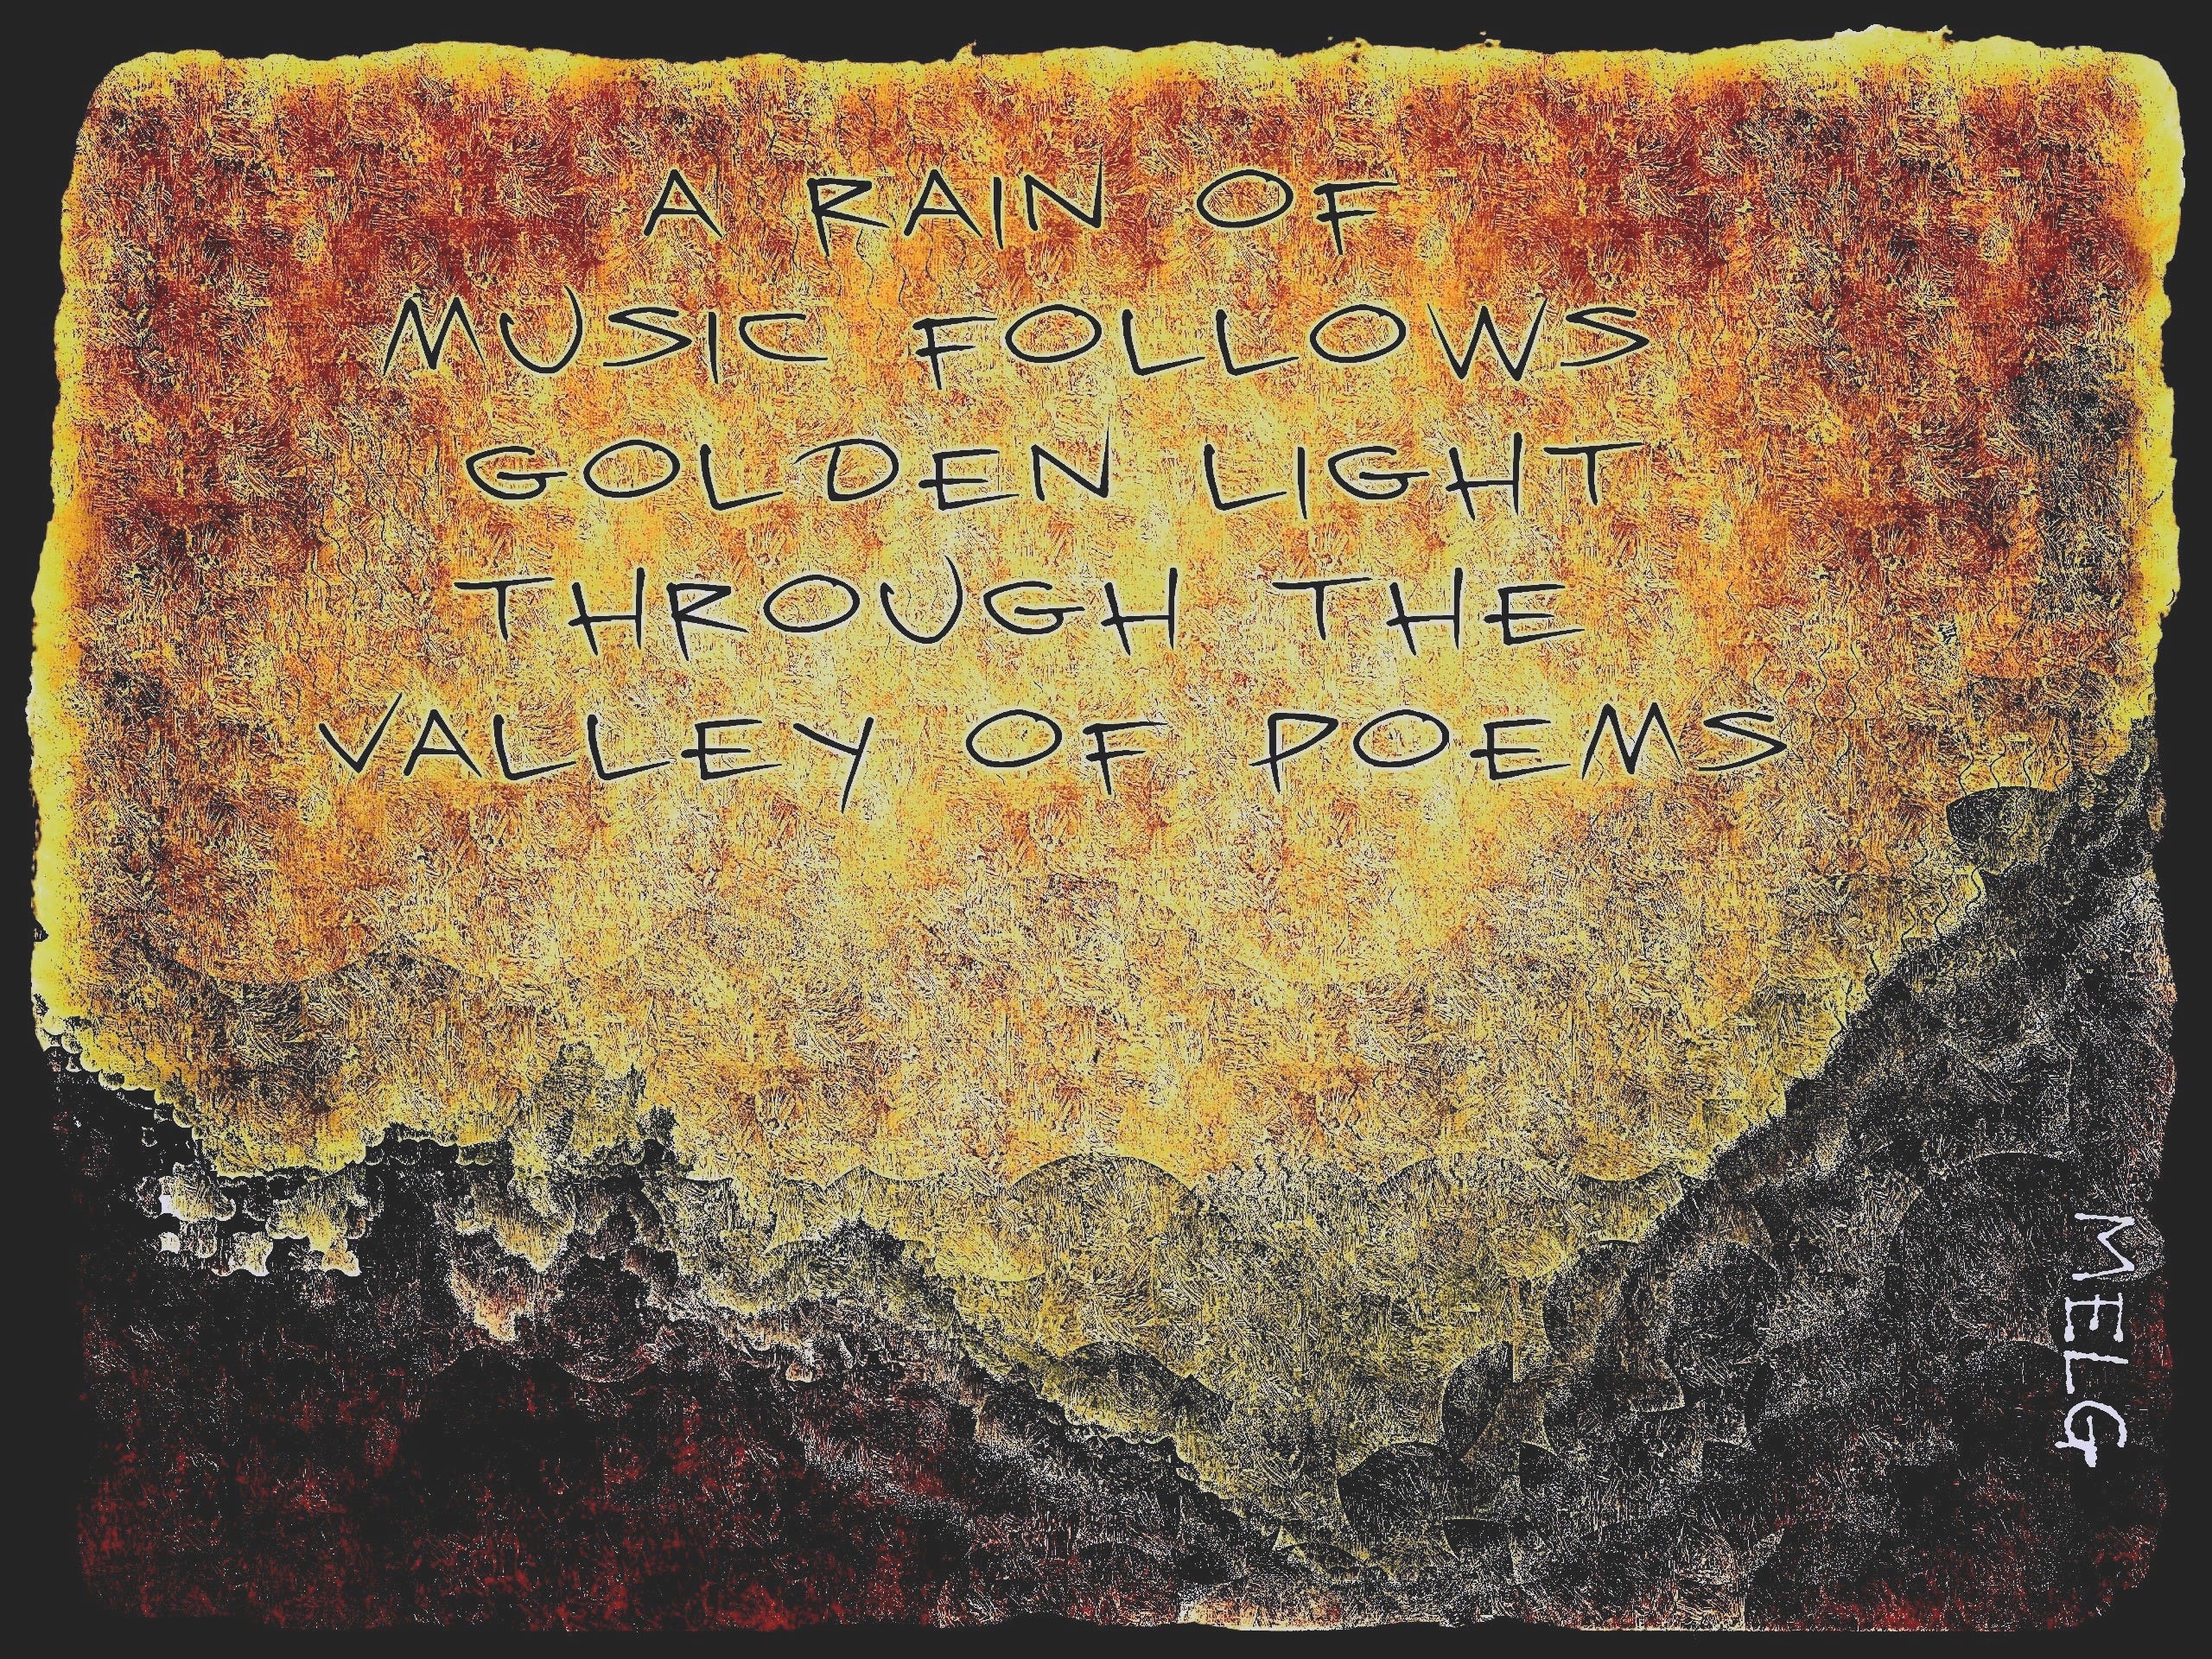 A RAIN OF
MUSIC FOLLOWS
GOLDEN LIGHT
THROUGH THE
VALLEY OF POEMS
MELG